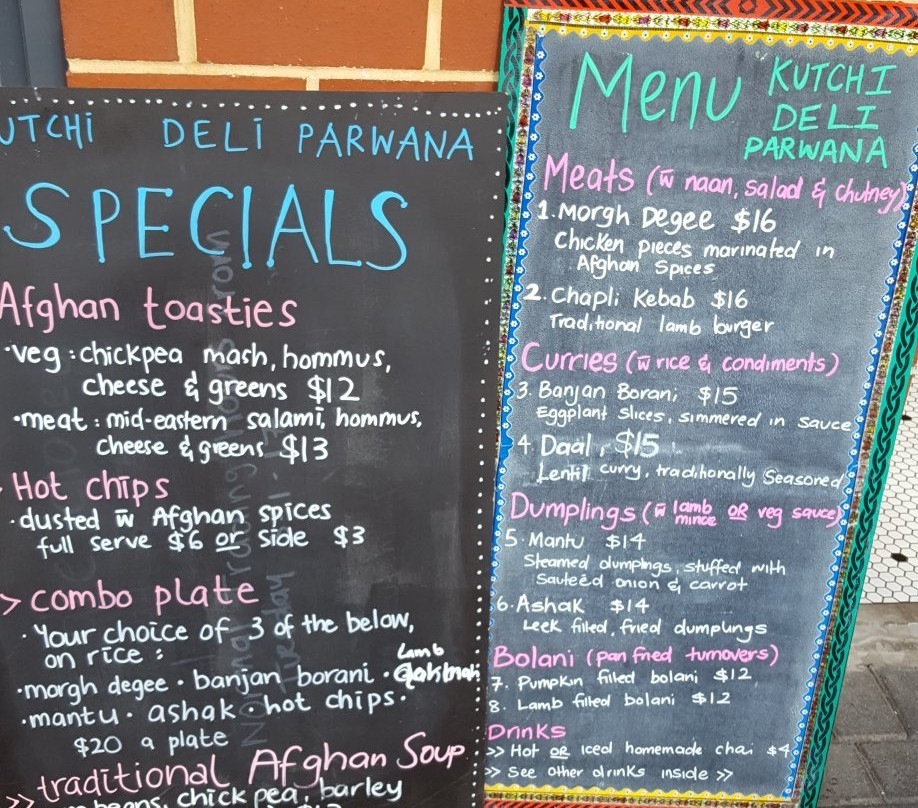 UTCHi DELi PARWANA
SPECIALS
Afghan toasties
·veg : chickpea mash, hommus,
cheese & greens $12
·meat : mid-eastern salami, hommus,
cheese & greens $13
Hot chips
·dusted w̄ Afghan spices
full serve $6 or side $3
> combo plate
· Your choice of 3 of the below,
on rice :
Lamb
·morgh degee · banjan borani ·
·mantu · ashak · hot chips ·
$20 a plate
>> traditional Afghan Soup
beans, chick pea, barley
Menu KUTCHI
DELI
PARWANA
Meats (w̄ naan, salad & chutney)
1. Morgh Degee $16
Chicken pieces marinated in
Afghan Spices
2. Chapli Kebab $16
Traditional lamb burger
Curries (w̄ rice & condiments)
3. Banjan Borani $15
Eggplant slices, simmered in sauce
4. Daal, $15
Lentil curry, traditionally seasoned
Dumplings (w̄ lamb mince OR veg sauce)
5. Mantu $14
Steamed dumplings, stuffed with
sauteéd onion & carrot
6. Ashak $14
Leek filled, fried dumplings
Bolani (pan fried turnovers)
7. Pumpkin filled bolani $12
8. Lamb filled bolani $12
Drinks
>> Hot OR Iced homemade chai $4
>> See other drinks inside >>